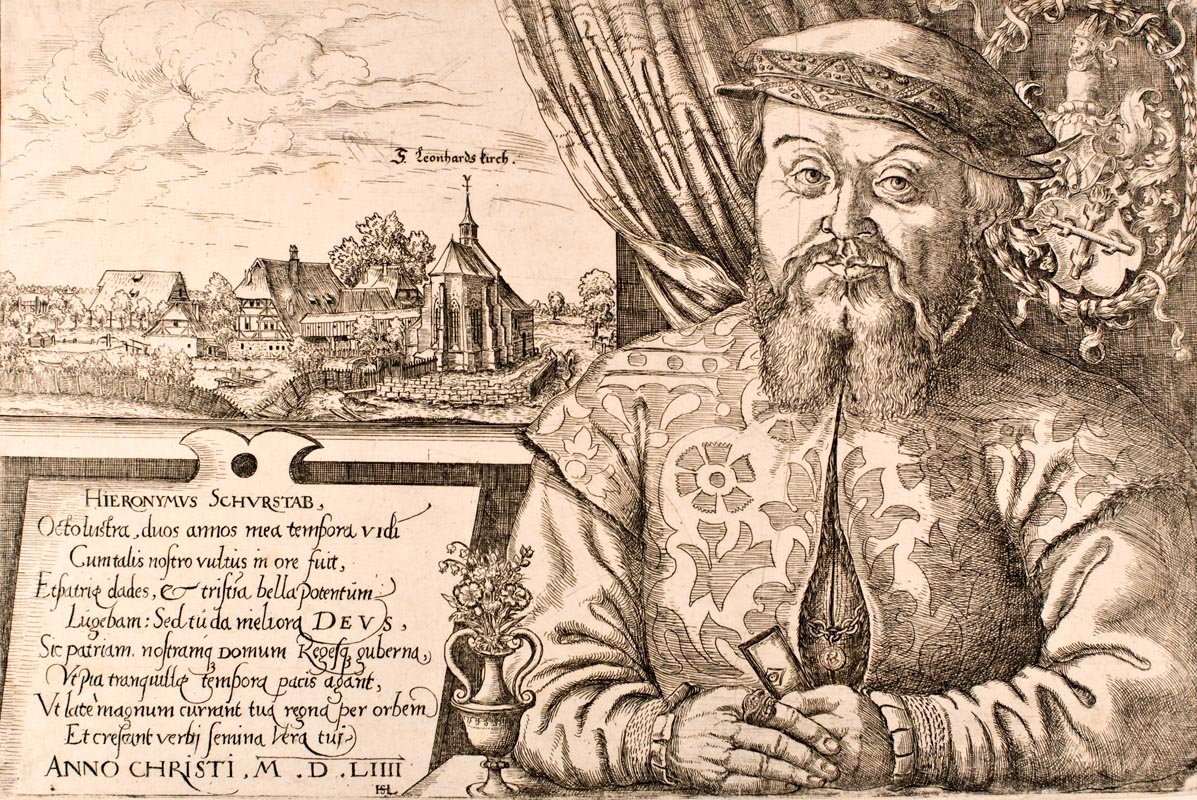 S. Leonhards kirch.
HIERONYMVS SCHVRSTAB,
Octo lustra, duos annos mea tempora vidi
Cum talis nostro vultus in ore fuit,
Et patrię clades, & tristia bella potentum
Lugebam: Sed tu da meliora DEVS,
Sic patriam, nostramq́ DOMUM Regesq́ guberna,
Vt pia tranquillę tempora pacis agant,
Vt latè magnum currant tua regna per orbem
Et crescant verbi semina vera tui
ANNO CHRISTI . M . D . LIIII
HSL